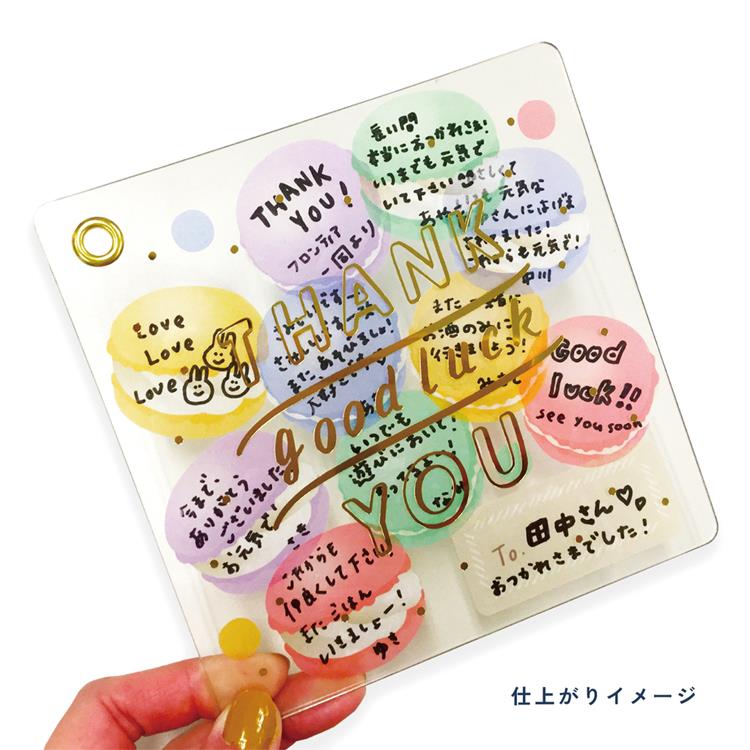 長い間
本当におつかれさま!
いつまでも元気で
いて下さい
THANK
YOU!
フロンティア
一同より
さんにはげま
これからも元気で!
中川
Love
Love
Love
THANK
good luck
YOU
また一緒に
お酒のみに
行きましょう!
Good
luck!!
see you soon
いつでも
遊びにおいで!
今まで、
ありがとう
ございました
お元気で!
To. 田中さん♡
おつかれさまでした!
これからも
仲良くして下さい
またごはん
いきましょー!
ゆき
仕上がりイメージ